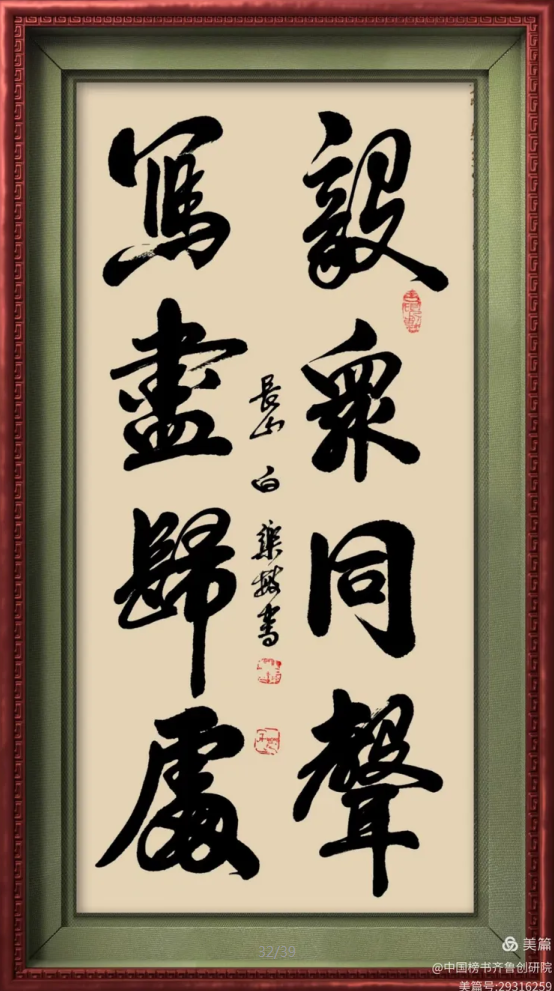 毅眾同聲
寫盡歸處
長山 白 書
32/39
美篇
@中国榜书齐鲁创研院
美篇号:29316259